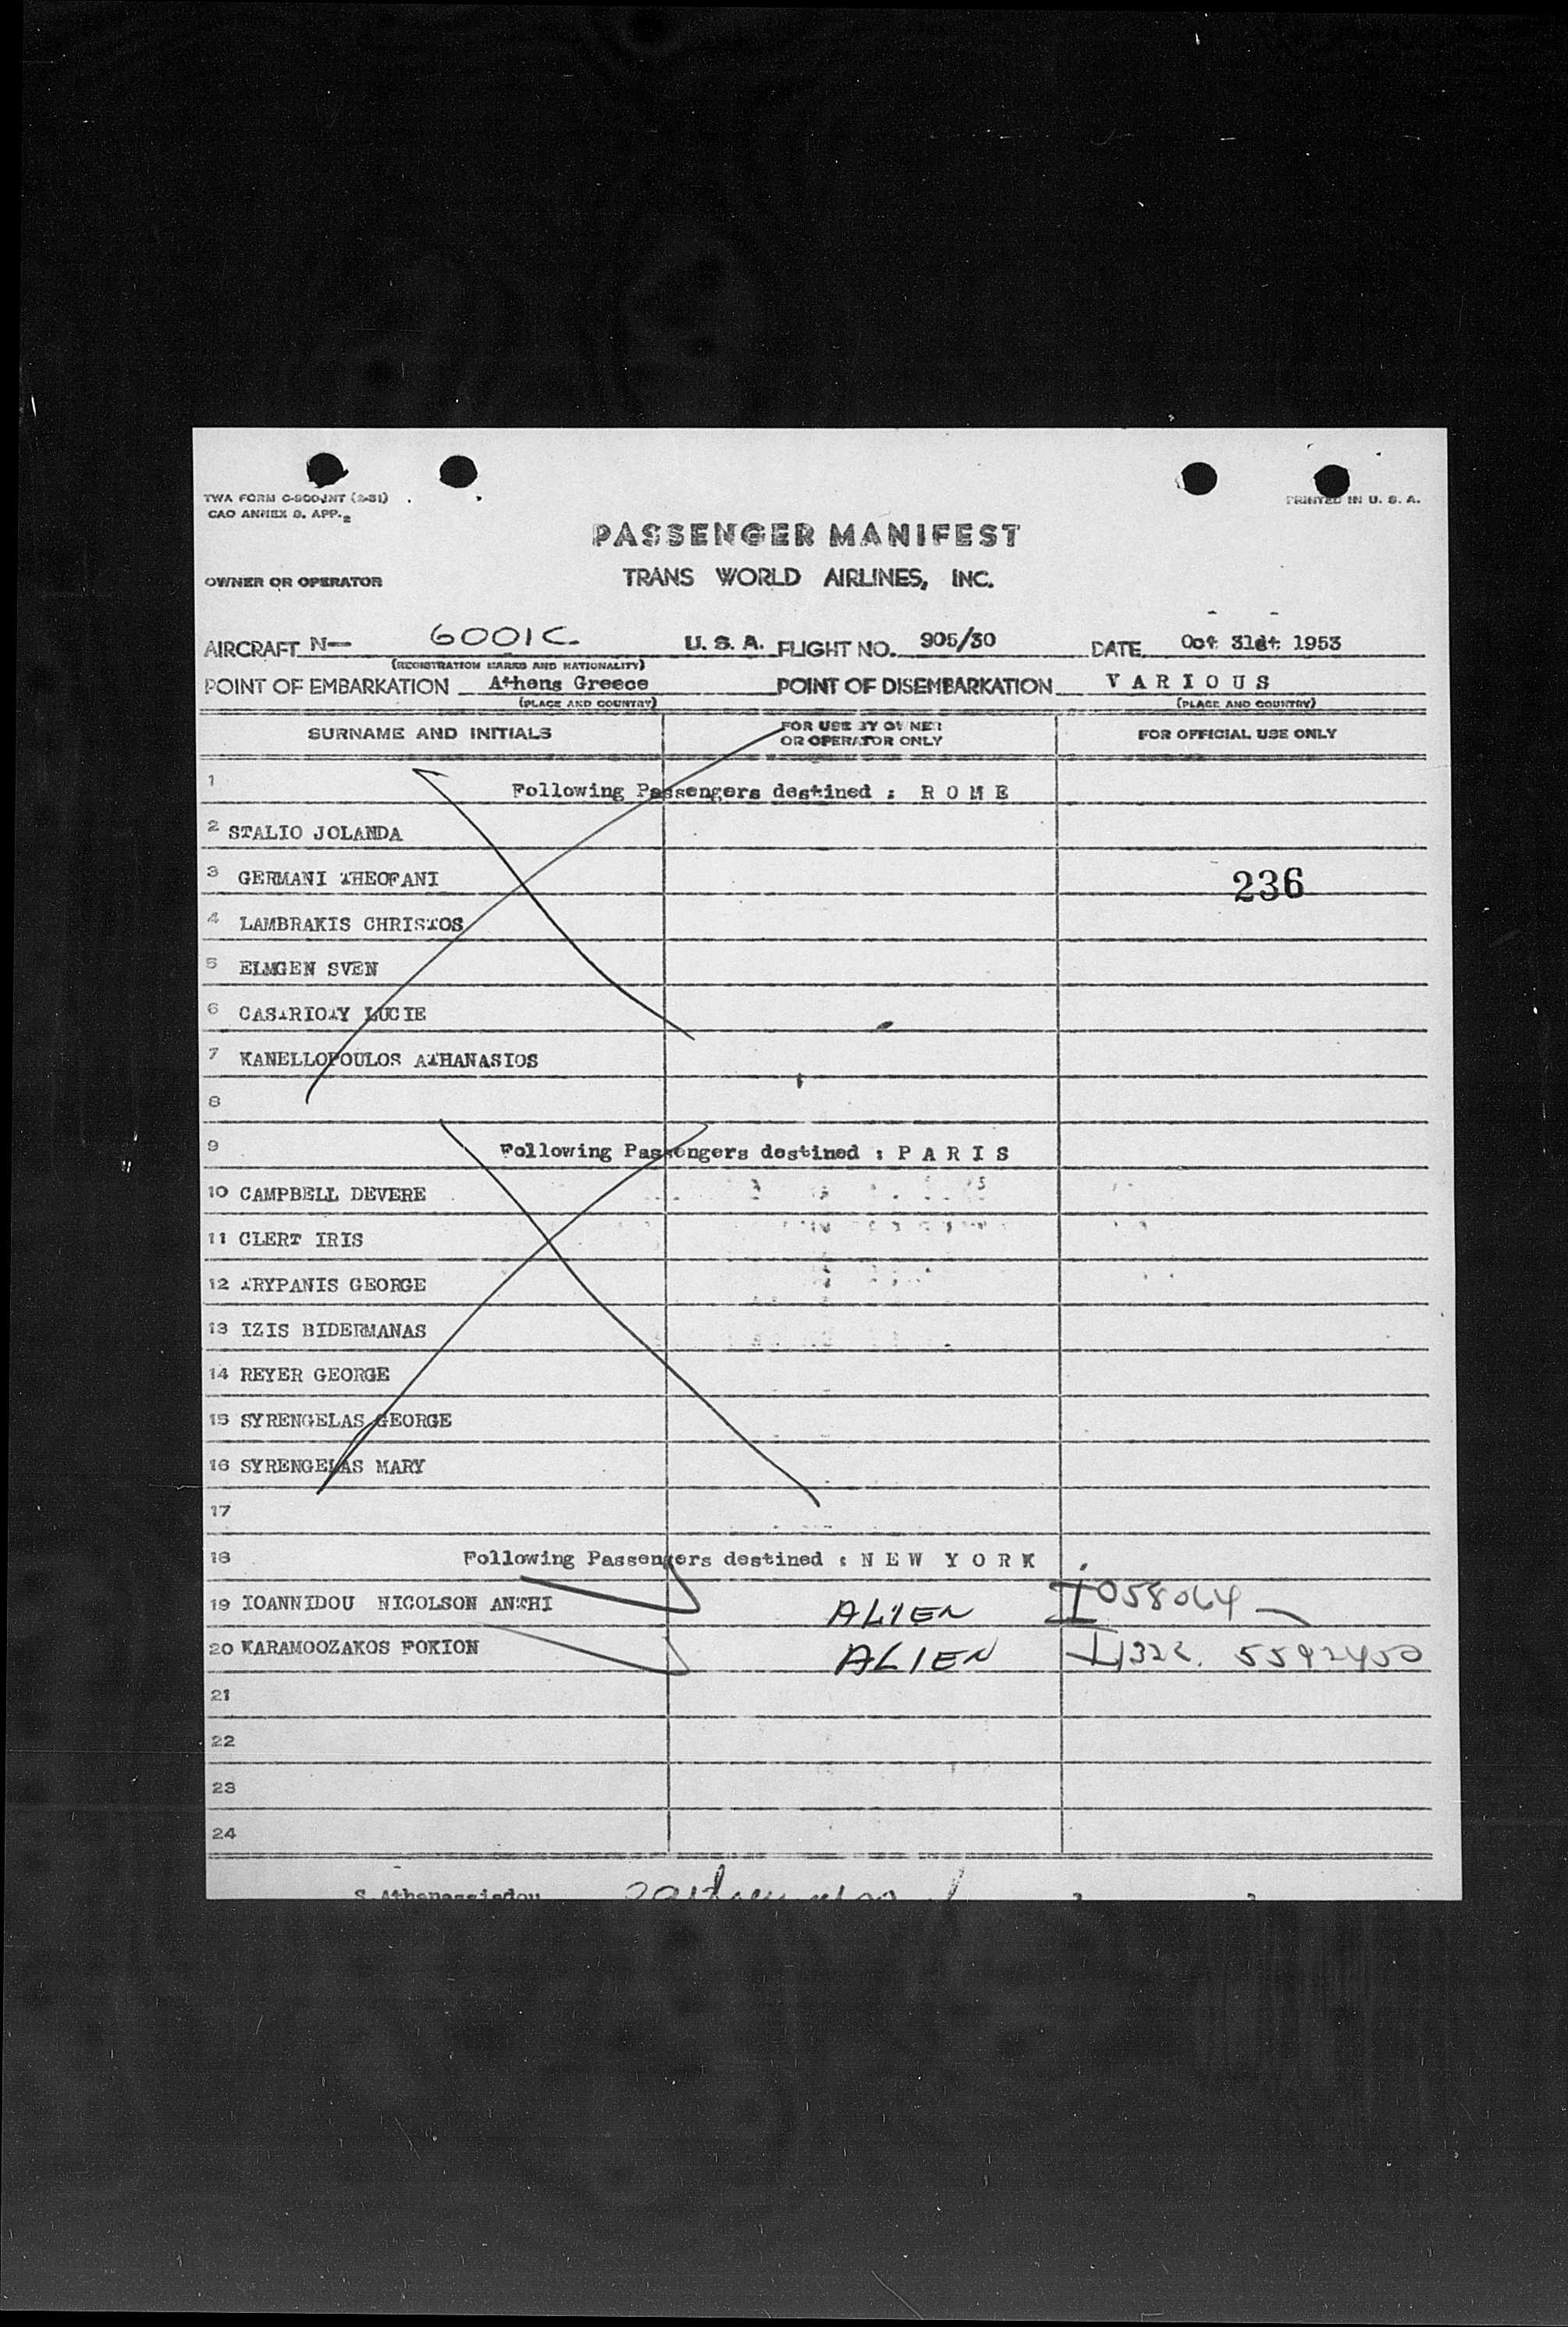 TWA FORM C-900-INT (2-51)
CAO ANNEX 9. APP. 2
PRINTED IN U. S. A.
PASSENGER MANIFEST
OWNER OR OPERATOR
TRANS WORLD AIRLINES, INC.
AIRCRAFT N— 6001C U. S. A. FLIGHT NO. 905/30 DATE Oct 31st 1953
(REGISTRATION MARKS AND NATIONALITY)
POINT OF EMBARKATION Athens Greece POINT OF DISEMBARKATION V A R I O U S
(PLACE AND COUNTRY) (PLACE AND COUNTRY)
SURNAME AND INITIALS FOR USE BY OWNER OR OPERATOR ONLY FOR OFFICIAL USE ONLY
1 Following Passengers destined : R O M E
2 STALIO JOLANDA
3 GERMANI THEOFANI 236
4 LAMBRAKIS CHRISTOS
5 ELMGEN SVEN
6 LUCIE
7 KANELLOPOULOS ATHANASIOS
8
9 Following Passengers destined : P A R I S
10 CAMPBELL DEVERE
11 CLERT IRIS
12 TRYPANIS GEORGE
13 IZIS BIDERMANAS
14 REYER GEORGE
15 SYRENGELAS GEORGE
16 SYRENGELAS MARY
17
18 Following Passengers destined : N E W Y O R K
19 IOANNIDOU NICOLSON ANTHI ALIEN I 058064
20 KARAMOOZAKOS FOKION ALIEN 5592450
21
22
23
24
S. Athanassiadou